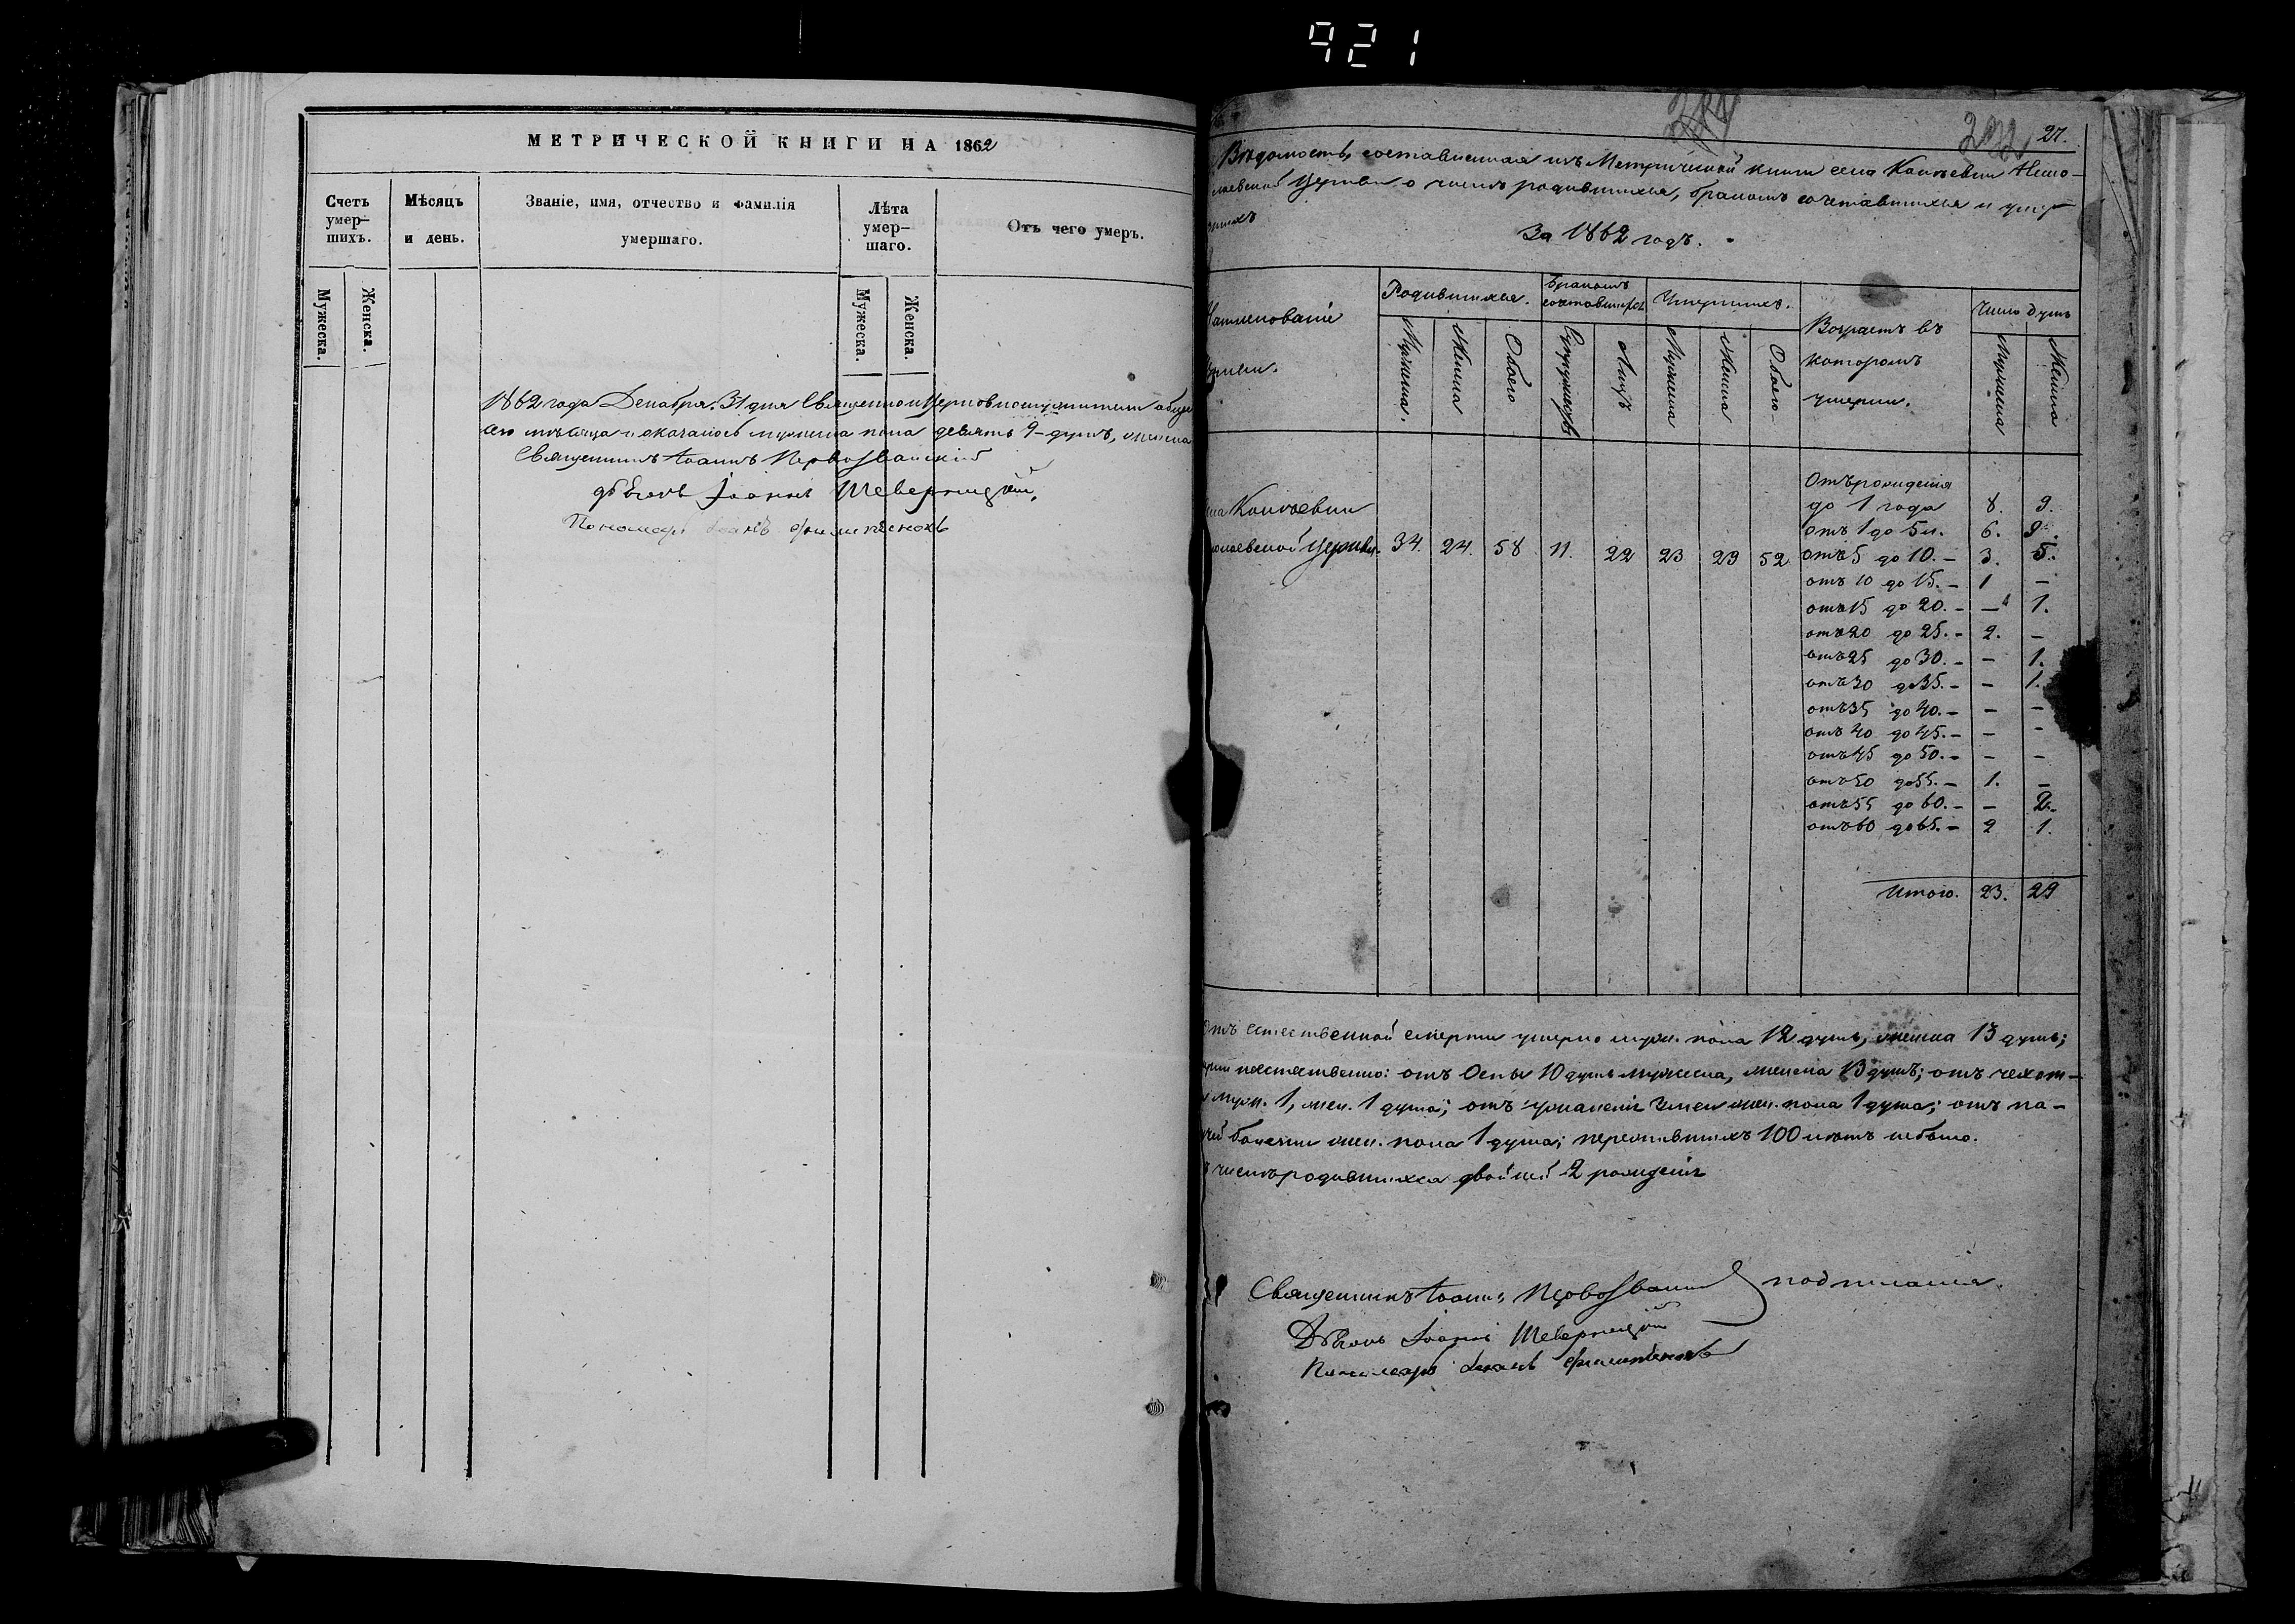 921
МЕТРИЧЕСКОЙ КНИГИ НА 1862
Счетъ умер-шихъ.
Мѣсяцъ и день.
Званіе, имя, отчество и фамилія умершаго.
Лѣта умер-шаго.
Отъ чего умеръ.
Мужеска.
Женска.
Мужеска.
Женска.
1862 года Декабря 31 дня
мѣсяца и оказалось мужеска пола девять 9 душъ, женска
Священникъ Іоаннъ Первозванскій
дьячокъ Іоаннъ Шеверницкій,
Пономарь
27.
Вѣдомость, составленная изъ Метрической книги села Нико-
лаевской Церкви о числѣ родившихся, бракомъ сочетавшихся и умер-
шихъ
За 1862 годъ.
Наименованіе
Церкви.
Родившихся.
Бракомъ сочетавшихся
Умершихъ.
Возрастъ въ
которомъ
умерли.
Число душъ
Мужеска.
Женска
Обоего
Супружествъ
Лицъ
Мужеска
Женска
Обоего
Мужеска
Женска
Отъ рожденія
до 1 года 8. 9.
отъ 1 до 5 л. 6. 9.
Церкви. 34. 24. 58 11. 22 23 29 52
отъ 5 до 10. – 3. 5.
отъ 10 до 15. – 1 –
отъ 15 до 20. – – 1.
отъ 20 до 25. – 2. –
отъ 25 до 30. – – 1.
отъ 30 до 35. – – 1.
отъ 35 до 40. – – –
отъ 40 до 45. – – –
отъ 45 до 50. – – –
отъ 50 до 55. – 1. –
отъ 55 до 60. – – 2.
отъ 60 до 65. – 2 1.
Итого. 23. 29
Отъ естественной смерти умерло муж. пола 12 душъ, женска 13 душъ;
отъ Оспы 10 душъ мужеска, женска 13 душъ; отъ чахот-
муж. 1, жен. 1 душа; отъ жен. пола 1 душа; отъ па-
болезни жен. пола 1 душа; пережившихъ 100 лѣтъ небыло.
числѣ родившихся двойней 2 рожденія
Священникъ Іоаннъ подписался.
Дьячокъ Іоаннъ Шеверницкій
Пономарь